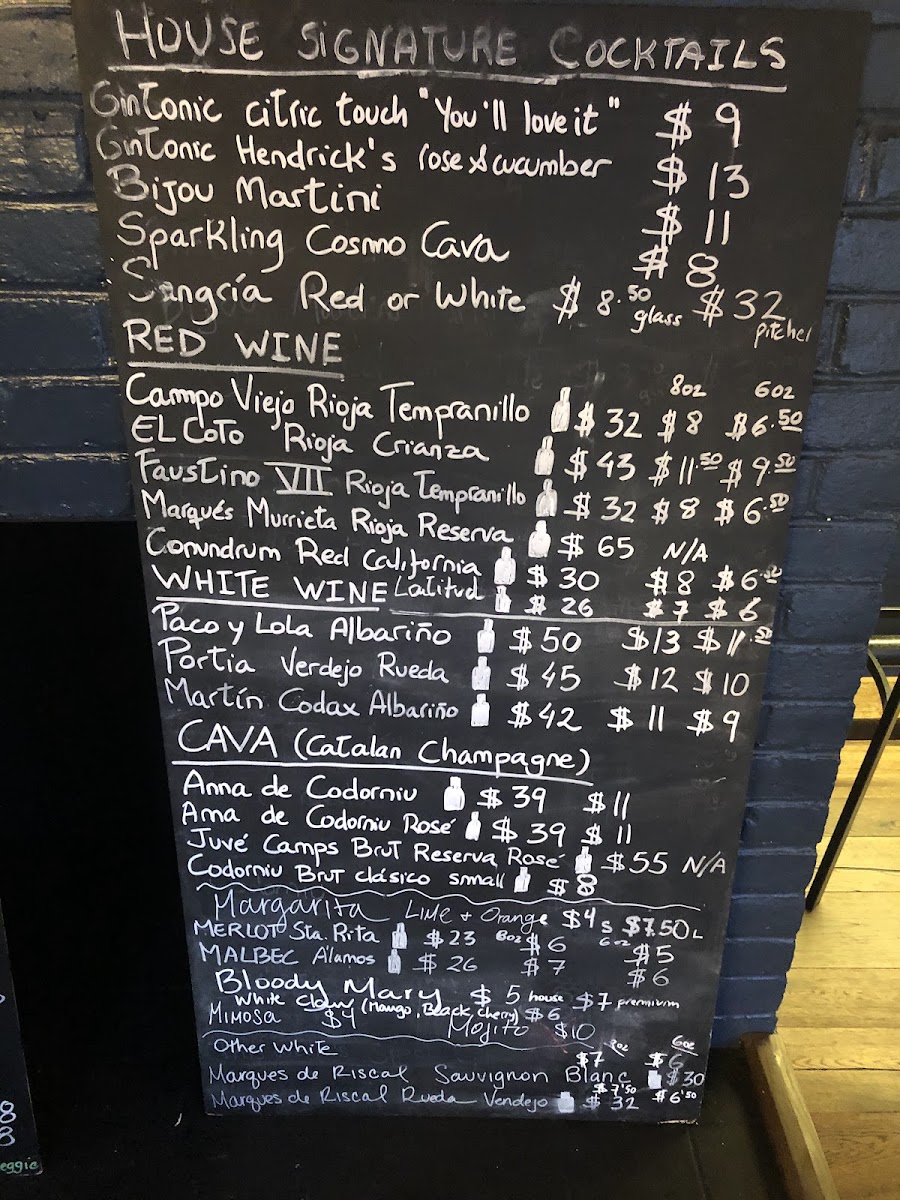 HOUSE SIGNATURE COCKTAILS
GinTonic citric touch "You'll love it" $ 9
GinTonic Hendrick's rose & cucumber $ 13
Bijou Martini $ 11
Sparkling Cosmo Cava $ 8
Sangría Red or White $ 8.50 glass $ 32 pitcher
RED WINE 8oz 6oz
Campo Viejo Rioja Tempranillo $ 32 $ 8 $ 6.50
EL Coto Rioja Crianza $ 43 $ 11.50 $ 9.50
Faustino VII Rioja Tempranillo $ 32 $ 8 $ 6.50
Marqués Murrieta Rioja Reserva $ 65 N/A
Conundrum Red California $ 30 $ 8 $ 6.50
WHITE WINE Latitud $ 26 $ 7 $ 6
Paco y Lola Albariño $ 50 $ 13 $ 11.50
Portia Verdejo Rueda $ 45 $ 12 $ 10
Martín Codax Albariño $ 42 $ 11 $ 9
CAVA (Catalan Champagne)
Anna de Codorniu $ 39 $ 11
Anna de Codorniu Rosé $ 39 $ 11
Juvé Camps Brut Reserva Rosé $ 55 N/A
Codorniu Brut clásico small $ 8
Margarita Lime + Orange $4 s $7.50 L
MERLOT Sta. Rita $ 23 8oz $ 6 6oz $ 5
MALBEC Alamos $ 26 $ 7 $ 6
Bloody Mary $ 5 house $ 7 premium
White Claw (Mango, Black Cherry) $ 6
Mimosa $4 Mojito $10
Other White $7 8oz $ 6 6oz
Marques de Riscal Sauvignon Blanc $30
Marques de Riscal Rueda Vendejo $ 32 $ 7'50 $ 6'50
8
8
eggie